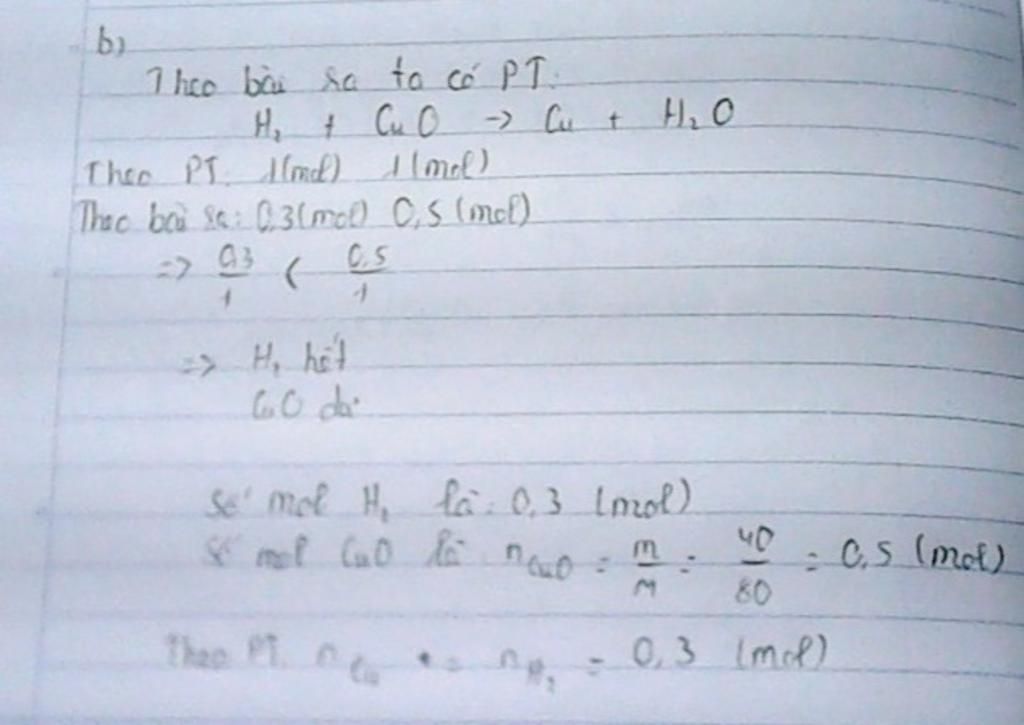 b)
Theo bài ra ta có PT.
H₂ + CuO -> Cu + H₂O
Theo PT. 1(mol) 1(mol)
Theo bài ra: 0,3(mol) 0,5(mol)
=> 0,3/1 < 0,5/1
=> H₂ hết
CuO dư
Số mol H₂ là: 0,3 (mol)
Số mol CuO là: n CuO = m/M = 40/80 = 0,5 (mol)
Theo PT. n Cu = n H₂ = 0,3 (mol)